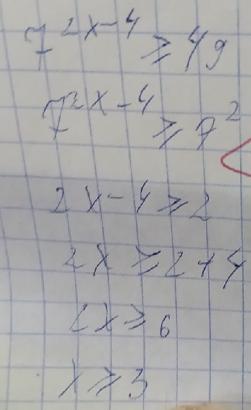 7^{2x-4} ≥ 49
7^{2x-4} ≥ 7^2
2x-4 ≥ 2
2x ≥ 2+4
2x ≥ 6
x ≥ 3